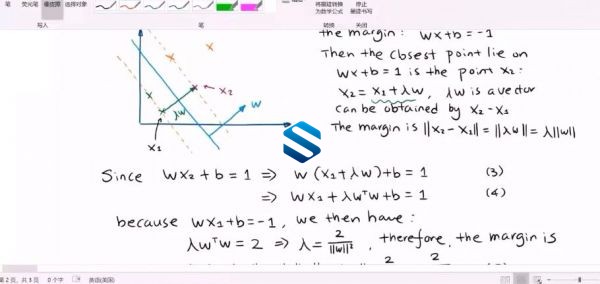 笔 荧光笔 橡皮擦 选择对象
将墨迹转换为数学公式 停止墨迹书写
写入 笔 转换 关闭
the margin: wx+b=-1
Then the closest point lie on
wx+b=1 is the point x₂:
x₂=x₁+λw, λw is a vector
can be obtained by x₂-x₁
The margin is ||x₂-x₁||=||λw||=λ||w||
x₂
w
λw
x₁
Since wx₂+b=1 ⇒ w(x₁+λw)+b=1 (3)
⇒ wx₁+λwᵀw+b=1 (4)
because wx₁+b=-1, we then have:
λwᵀw=2 ⇒ λ=2/||w||², therefore, the margin is
2 2
第2页, 共3页 0个字 英语(美国)